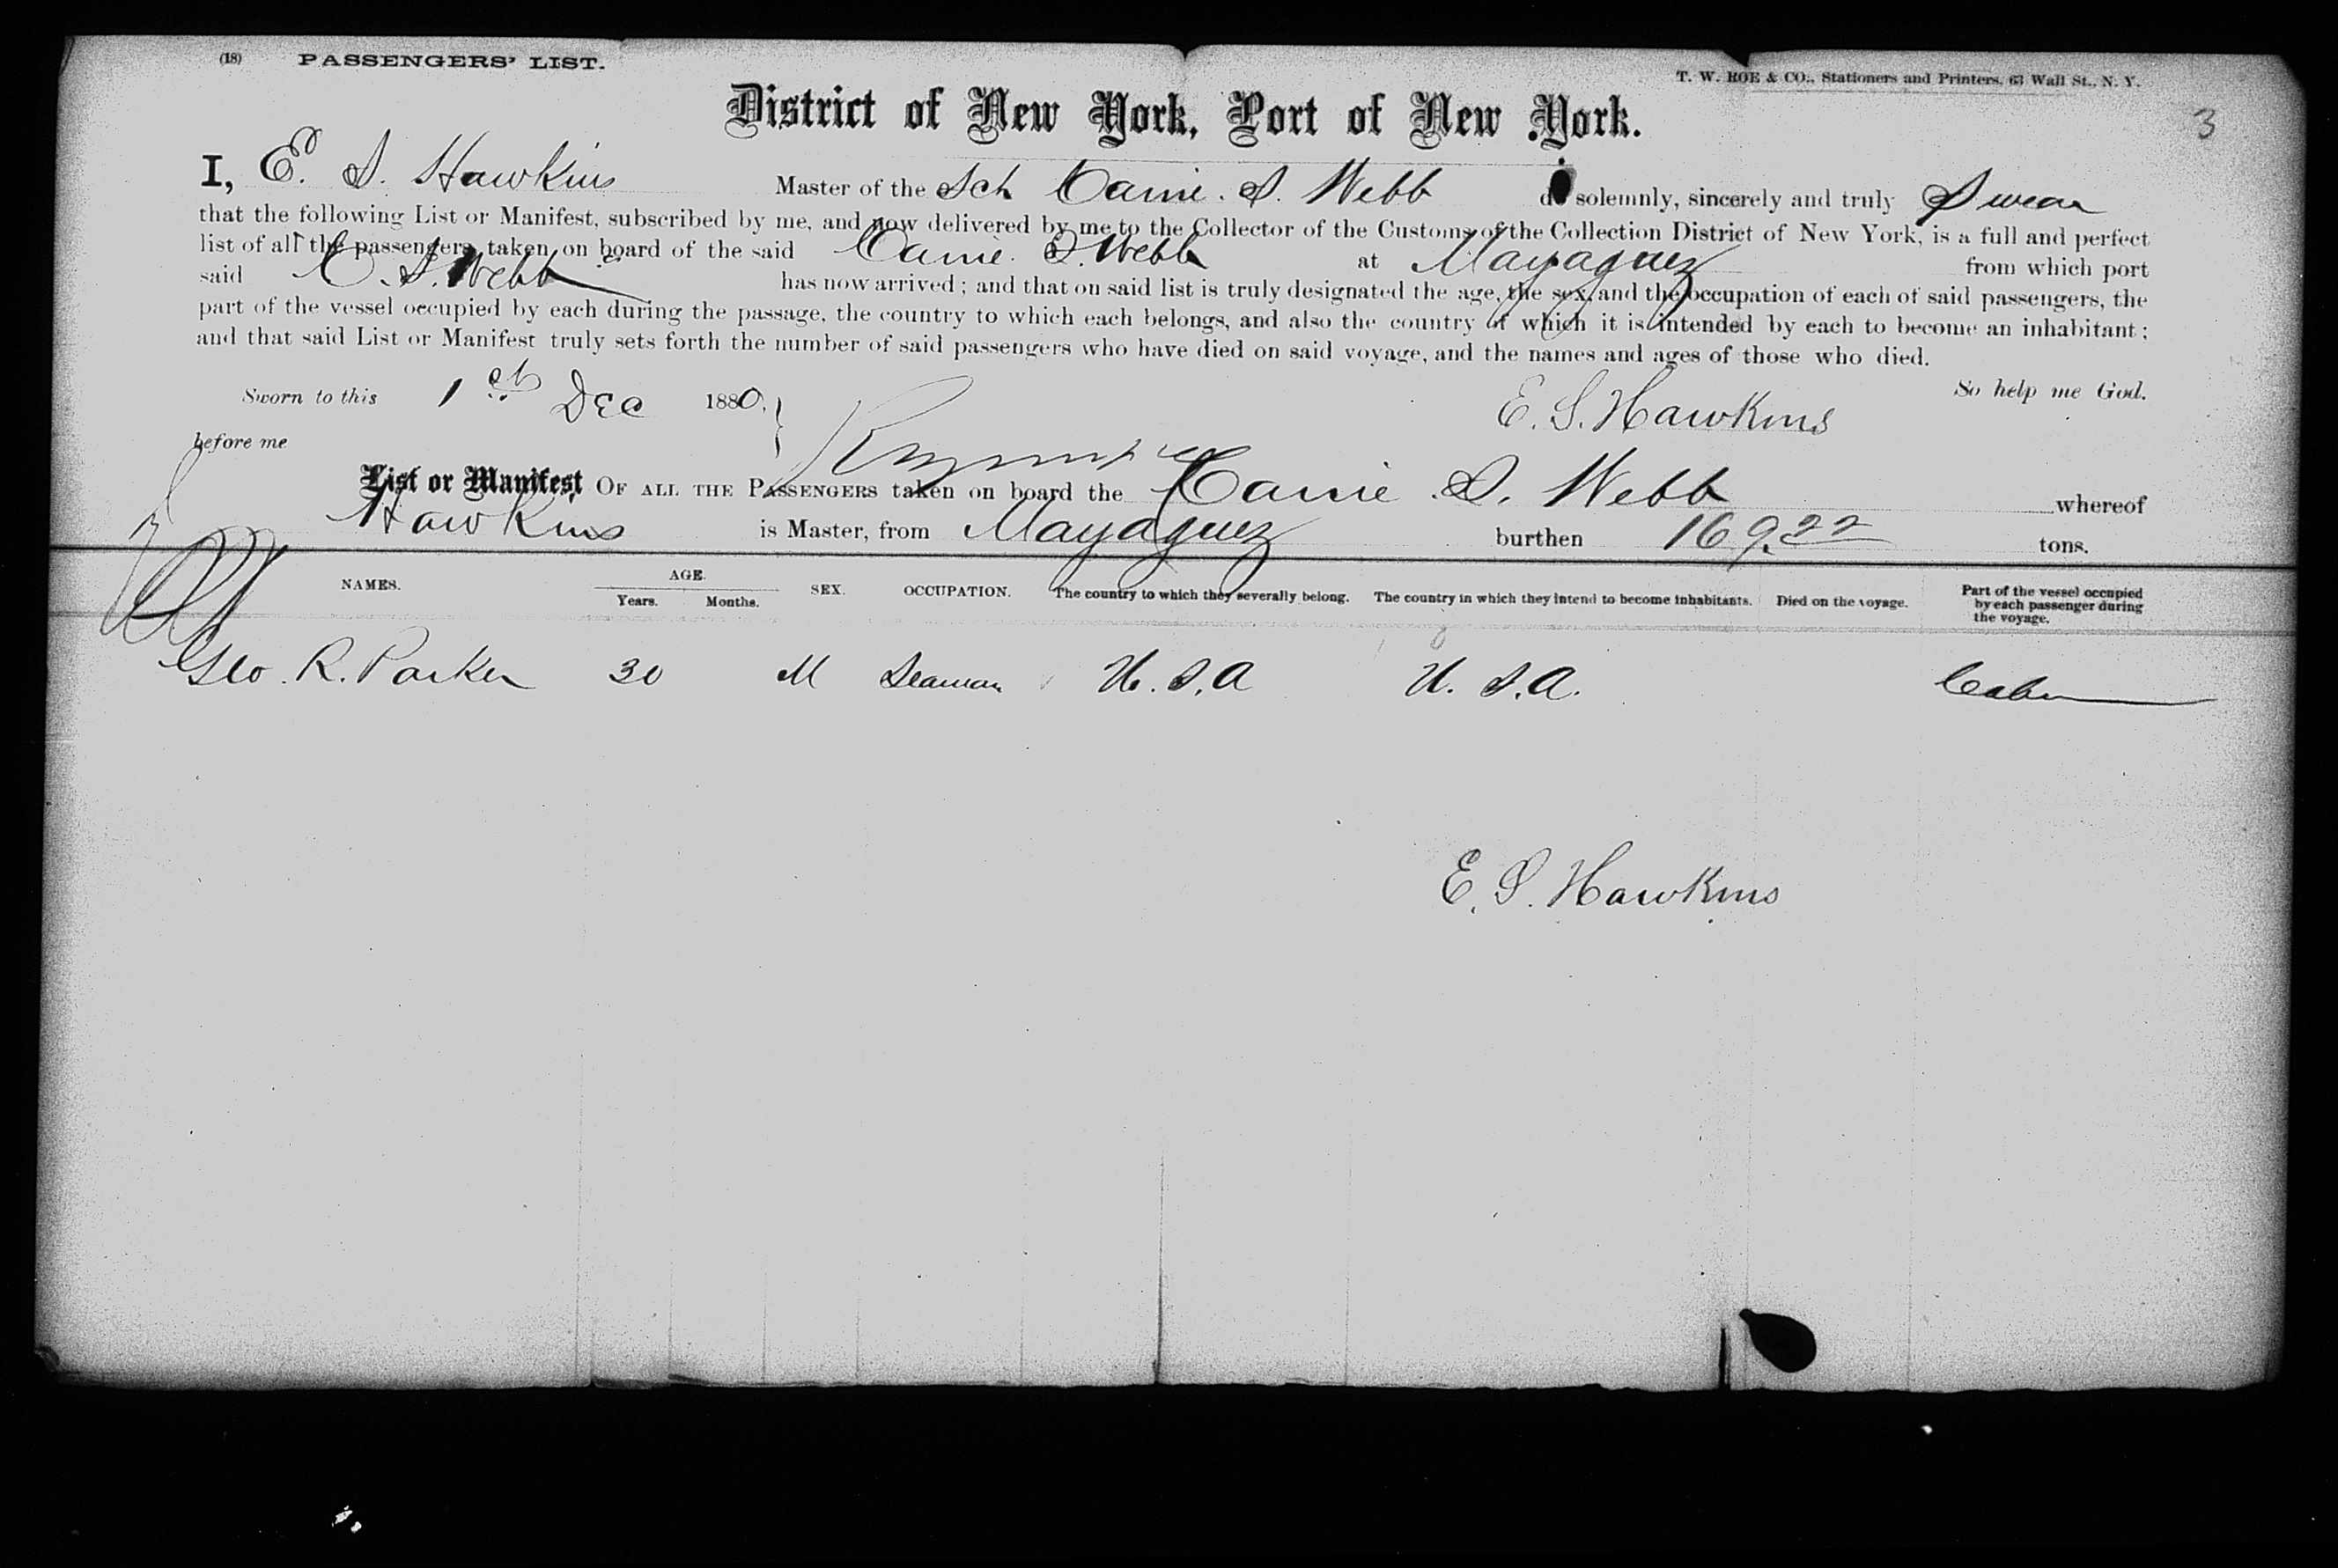 (18) PASSENGERS' LIST.
T. W. ROE & CO., Stationers and Printers, 63 Wall St., N. Y.
District of New York, Port of New York.
3
I, E. S. Hawkins Master of the Sch Carrie. S. Webb do solemnly, sincerely and truly Swear
that the following List or Manifest, subscribed by me, and now delivered by me to the Collector of the Customs of the Collection District of New York, is a full and perfect
list of all the passengers taken on board of the said Carrie. S. Webb at Mayaguez from which port
said C. S. Webb has now arrived; and that on said list is truly designated the age, the sex, and the occupation of each of said passengers, the
part of the vessel occupied by each during the passage, the country to which each belongs, and also the country of which it is intended by each to become an inhabitant;
and that said List or Manifest truly sets forth the number of said passengers who have died on said voyage, and the names and ages of those who died.
So help me God.
Sworn to this 1st Dec 1880, E. S. Hawkins
before me
List or Manifest OF ALL THE PASSENGERS taken on board the Carrie S. Webb whereof
Hawkins is Master, from Mayaguez burthen 169.22 tons.
NAMES. AGE. Years. Months. SEX. OCCUPATION. The country to which they severally belong. The country in which they intend to become inhabitants. Died on the voyage. Part of the vessel occupied by each passenger during the voyage.
Geo. R. Parker 30 M Seaman U. S. A U. S. A. Cabin
E. S. Hawkins